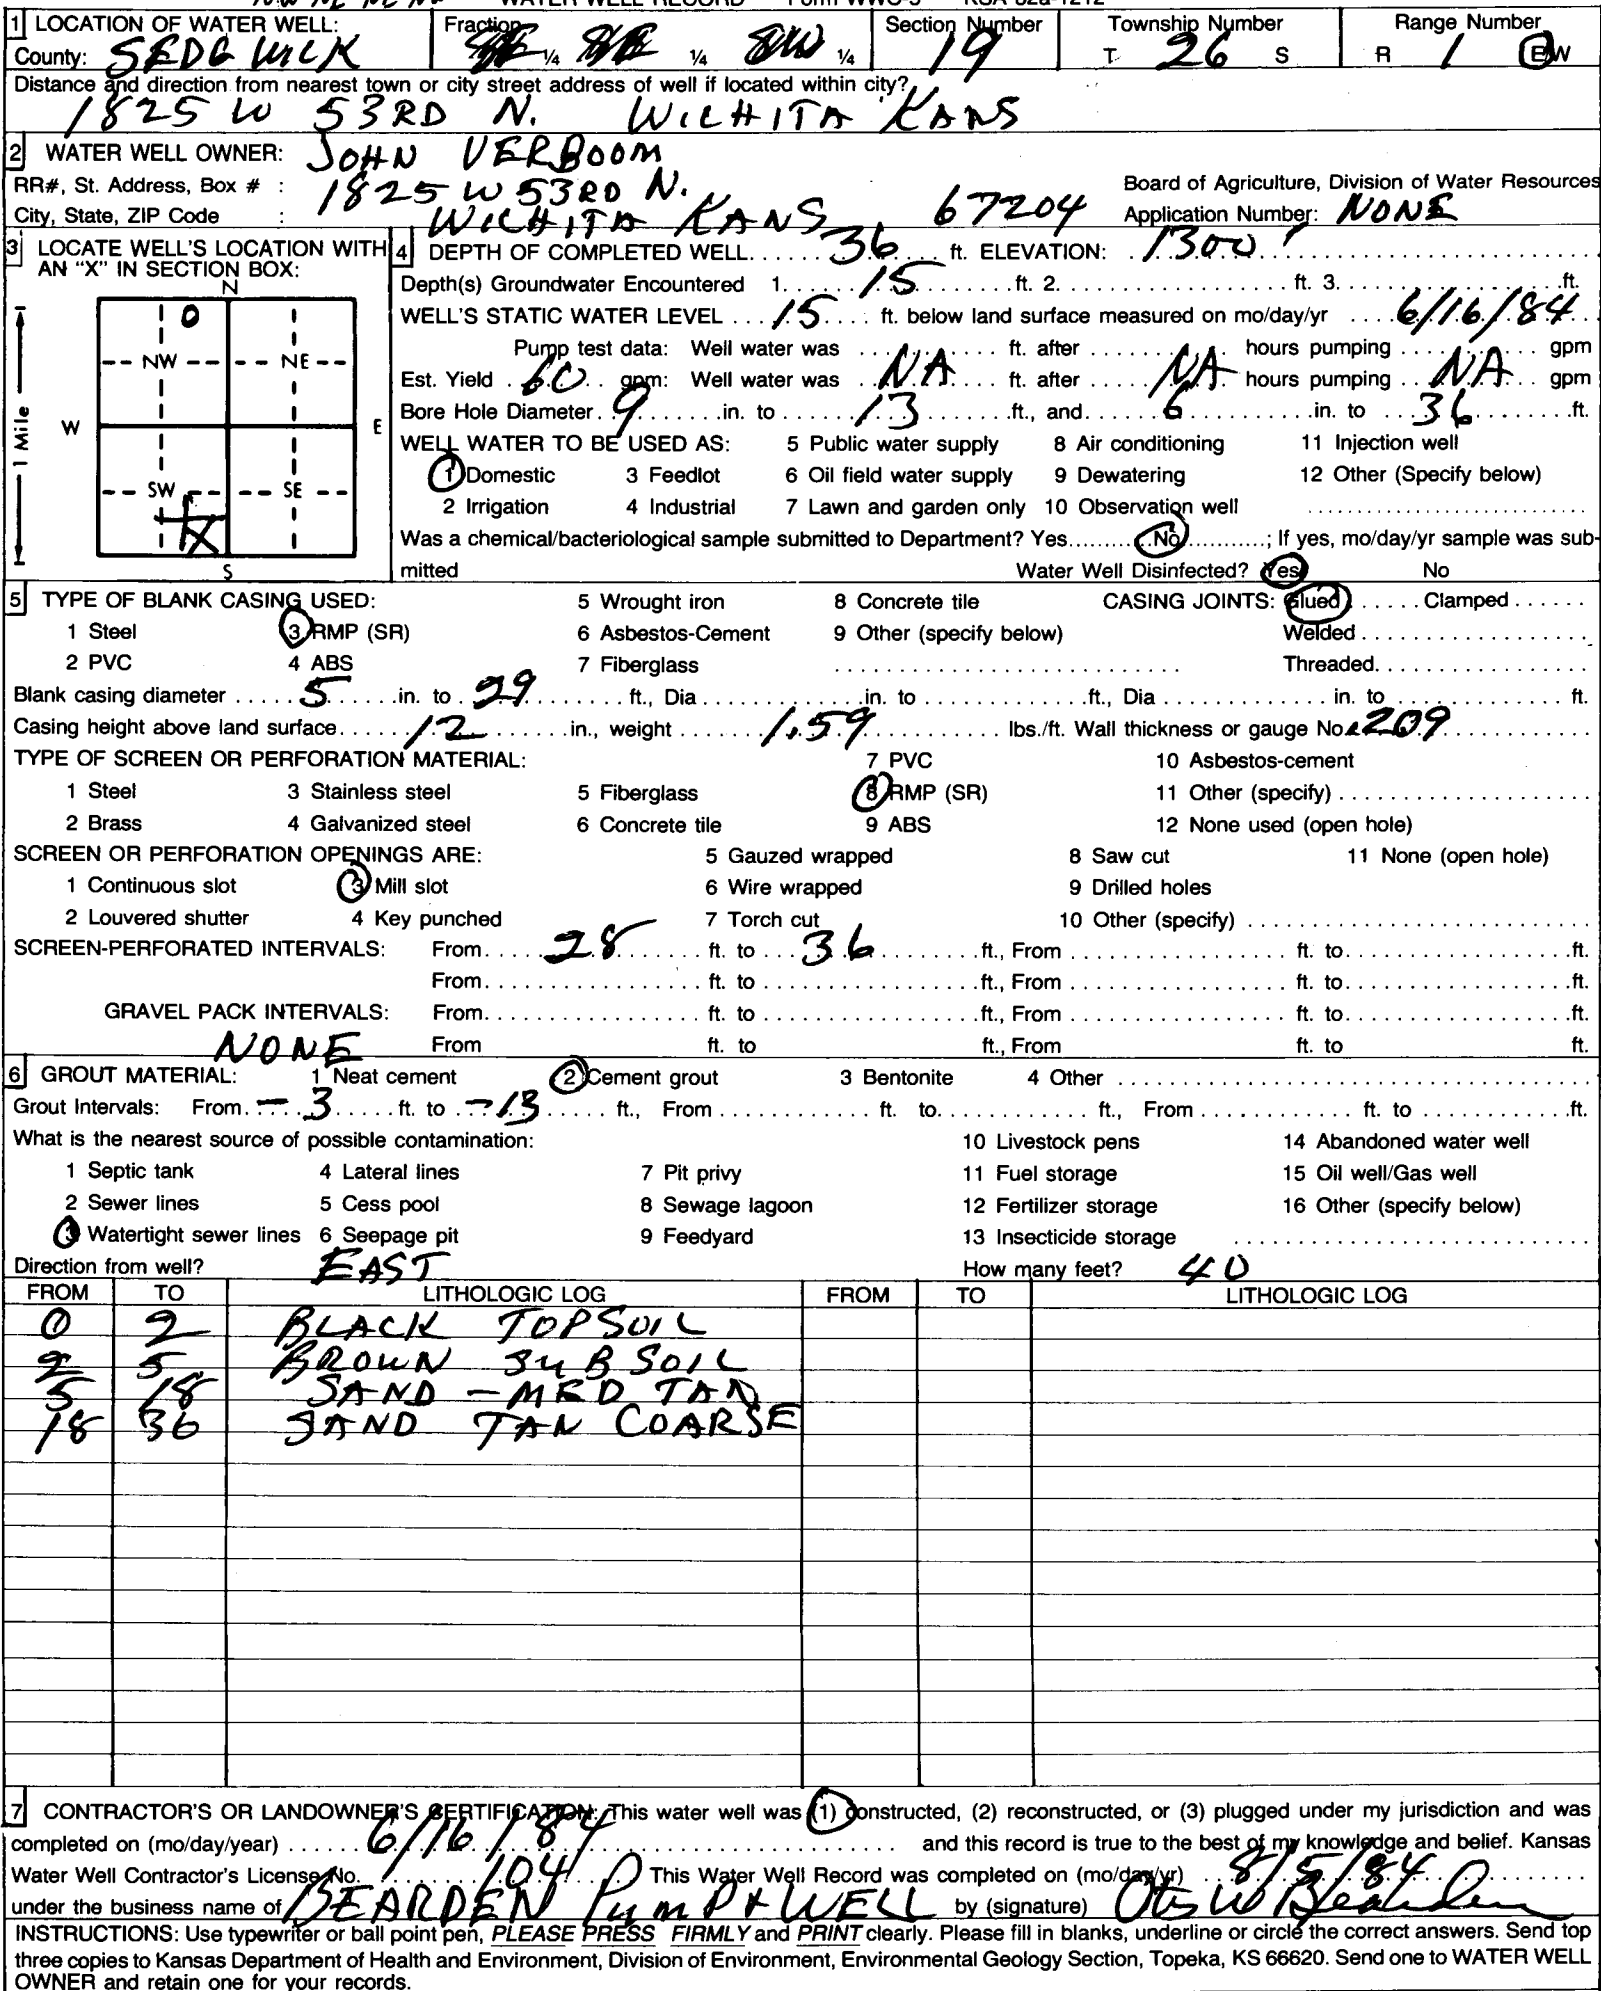 WATER WELL RECORD Form WWC-5 KSA 82a-1212
1 LOCATION OF WATER WELL: Fraction Section Number Township Number Range Number
County: SEDGWICK SE ¼ SE ¼ SW ¼ 19 T 26 S R 1 E/W
Distance and direction from nearest town or city street address of well if located within city?
1825 W 53RD N. WICHITA KANS
2 WATER WELL OWNER: JOHN VERBOOM
RR#, St. Address, Box # : 1825 W 53RD N. Board of Agriculture, Division of Water Resources
City, State, ZIP Code : WICHITA KANS 67204 Application Number: NONE
3 LOCATE WELL'S LOCATION WITH AN "X" IN SECTION BOX:
N
NW NE
W E
SW SE
X
S
1 Mile
4 DEPTH OF COMPLETED WELL 36 ft. ELEVATION: 1300'
Depth(s) Groundwater Encountered 1. 15 ft. 2. ft. 3. ft.
WELL'S STATIC WATER LEVEL 15 ft. below land surface measured on mo/day/yr 6/16/84
Pump test data: Well water was ft. after hours pumping gpm
Est. Yield 60 gpm: Well water was NA ft. after NA hours pumping NA gpm
Bore Hole Diameter 9 in. to 13 ft., and 6 in. to 36 ft.
WELL WATER TO BE USED AS: 5 Public water supply 8 Air conditioning 11 Injection well
1 Domestic 3 Feedlot 6 Oil field water supply 9 Dewatering 12 Other (Specify below)
2 Irrigation 4 Industrial 7 Lawn and garden only 10 Observation well
Was a chemical/bacteriological sample submitted to Department? Yes No ; If yes, mo/day/yr sample was sub-
mitted Water Well Disinfected? Yes No
5 TYPE OF BLANK CASING USED: 5 Wrought iron 8 Concrete tile CASING JOINTS: Glued Clamped
1 Steel 3 RMP (SR) 6 Asbestos-Cement 9 Other (specify below) Welded
2 PVC 4 ABS 7 Fiberglass Threaded
Blank casing diameter 5 in. to 29 ft., Dia in. to ft., Dia in. to ft.
Casing height above land surface 12 in., weight 1.59 lbs./ft. Wall thickness or gauge No. .209
TYPE OF SCREEN OR PERFORATION MATERIAL: 7 PVC 10 Asbestos-cement
1 Steel 3 Stainless steel 5 Fiberglass 8 RMP (SR) 11 Other (specify)
2 Brass 4 Galvanized steel 6 Concrete tile 9 ABS 12 None used (open hole)
SCREEN OR PERFORATION OPENINGS ARE: 5 Gauzed wrapped 8 Saw cut 11 None (open hole)
1 Continuous slot 3 Mill slot 6 Wire wrapped 9 Drilled holes
2 Louvered shutter 4 Key punched 7 Torch cut 10 Other (specify)
SCREEN-PERFORATED INTERVALS: From 28 ft. to 36 ft., From ft. to ft.
From ft. to ft., From ft. to ft.
GRAVEL PACK INTERVALS: From ft. to ft., From ft. to ft.
NONE From ft. to ft., From ft. to ft.
6 GROUT MATERIAL: 1 Neat cement 2 Cement grout 3 Bentonite 4 Other
Grout Intervals: From -3 ft. to -13 ft., From ft. to ft., From ft. to ft.
What is the nearest source of possible contamination: 10 Livestock pens 14 Abandoned water well
1 Septic tank 4 Lateral lines 7 Pit privy 11 Fuel storage 15 Oil well/Gas well
2 Sewer lines 5 Cess pool 8 Sewage lagoon 12 Fertilizer storage 16 Other (specify below)
3 Watertight sewer lines 6 Seepage pit 9 Feedyard 13 Insecticide storage
Direction from well? EAST How many feet? 40
FROM TO LITHOLOGIC LOG FROM TO LITHOLOGIC LOG
0 2 BLACK TOPSOIL
2 5 BROWN SUBSOIL
5 18 SAND - MED TAN
18 36 SAND TAN COARSE
7 CONTRACTOR'S OR LANDOWNER'S CERTIFICATION: This water well was (1) constructed, (2) reconstructed, or (3) plugged under my jurisdiction and was
completed on (mo/day/year) 6/16/84 and this record is true to the best of my knowledge and belief. Kansas
Water Well Contractor's License No. 104 This Water Well Record was completed on (mo/day/yr) 8/5/84
under the business name of BEARDEN Pump & WELL by (signature) Otis W Bearden
INSTRUCTIONS: Use typewriter or ball point pen, PLEASE PRESS FIRMLY and PRINT clearly. Please fill in blanks, underline or circle the correct answers. Send top
three copies to Kansas Department of Health and Environment, Division of Environment, Environmental Geology Section, Topeka, KS 66620. Send one to WATER WELL
OWNER and retain one for your records.